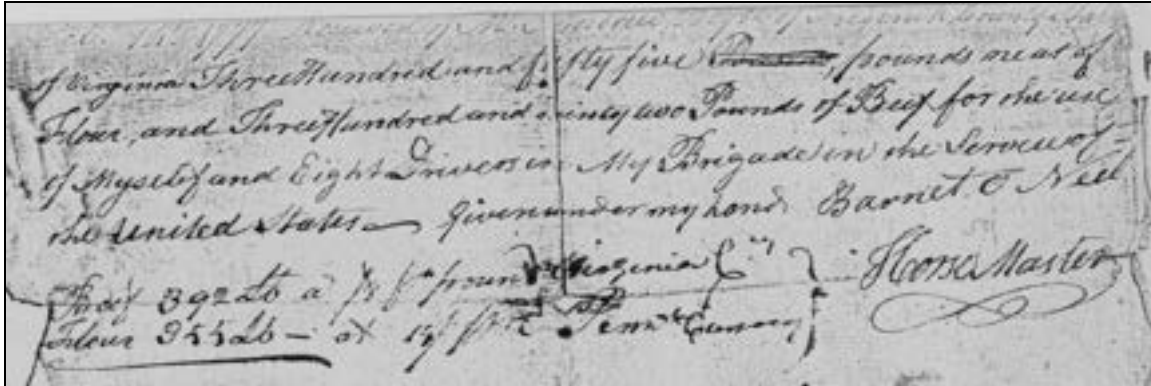 1777 Received of
of Virginia Three Hundred and fifty five pounds neat of
Flour, and Three Hundred and ninety two Pounds of Beef for the use
of Myself and Eight Drivers in My Brigade in the Service of
the United States Given under my hand Barnet O Neil
Beef 392 lb a pr pound Virginia C.y Horse Master
Flour 355 lb — at Penna Currency